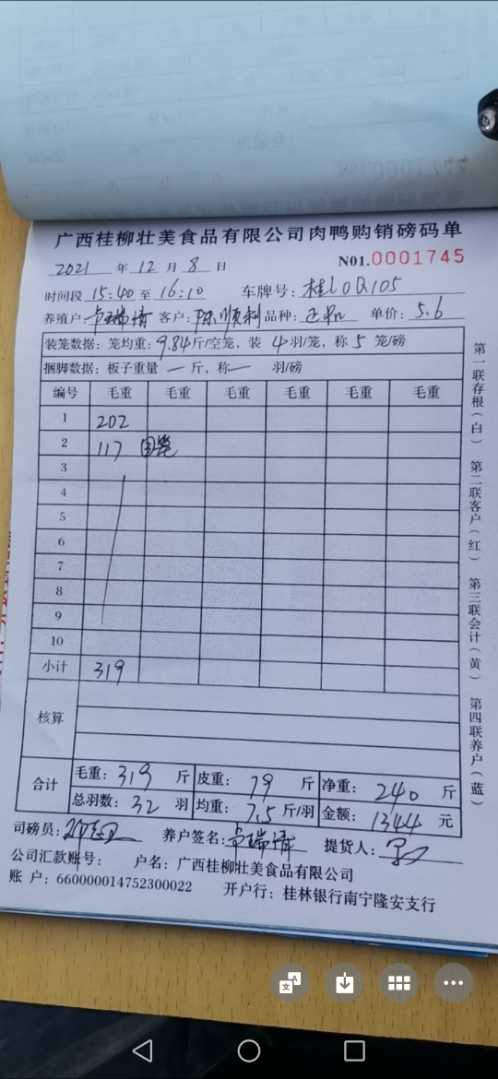 广西桂柳壮美食品有限公司肉鸭购销磅码单
2021 年 12 月 8 日 N01.0001745
时间段 15:40 至 16:10 车牌号: 桂L0Q105
养殖户 卢瑞清 客户: 陈顺利 品种: 单价: 5.6
装笼数据: 笼均重: 9.84斤/空笼, 装 4 羽/笼, 称 5 笼/磅
捆脚数据: 板子重量 — 斤, 称 — 羽/磅
编号 毛重 毛重 毛重 毛重 毛重 毛重
1 202
2 117
3
4
5
6
7
8
9
10
小计 319
核算
合计 毛重: 319 斤 皮重: 79 斤 净重: 240 斤
总羽数: 32 羽 均重: 7.5 斤/羽 金额: 1344 元
司磅员: 养户签名: 卢瑞清 提货人:
公司汇款账号: 户名: 广西桂柳壮美食品有限公司
账 户: 660000014752300022 开户行: 桂林银行南宁隆安支行
第一联存根(白) 第二联客户(红) 第三联会计(黄) 第四联养户(蓝)